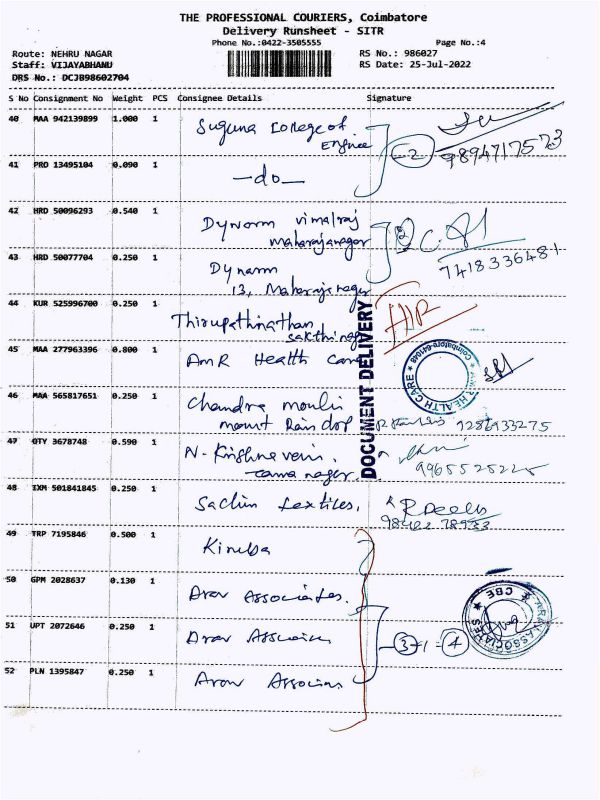 THE PROFESSIONAL COURIERS, Coimbatore
Delivery Runsheet - SITR
Phone No.:0422-3505555 Page No.:4
Route: NEHRU NAGAR RS No.: 986027
Staff: VIJAYABHANU RS Date: 25-Jul-2022
DRS No.: DCJB98602704
S No Consignment No Weight PCS Consignee Details Signature
40 MAA 942139899 1.000 1 Suguna College of
Enginee
-2 9894717573
41 PRO 13495104 0.090 1 -do-
42 HRD 50096293 0.540 1 Dynorm vimalraj
maharajanagar
2
7418336481
43 HRD 50077704 0.250 1 Dynarm
13, Maharajanagar
44 KUR 525996700 0.250 1 Thirupathinathan
sakthi nagar
45 MAA 277963396 0.800 1 AMR Health Care
DOCUMENT DELIVERY
AMR HEALTH CARE
46 MAA 565817651 0.250 1 Chandra mouli
mount Raindrop 9286933275
47 QTY 3678748 0.590 1 N. Krishnaveni.
nagar. 9965525225
48 IXM 501841845 0.250 1 Sachin textiles.
49 TRP 7195846 0.500 1 Kiruba
50 GPM 2028637 0.130 1 Arav Associates.
ASSOCIATES ★ CBE ★
51 UPT 2072646 0.250 1 Arav
3 +1 = 4
52 PLN 1395847 0.250 1 Arav